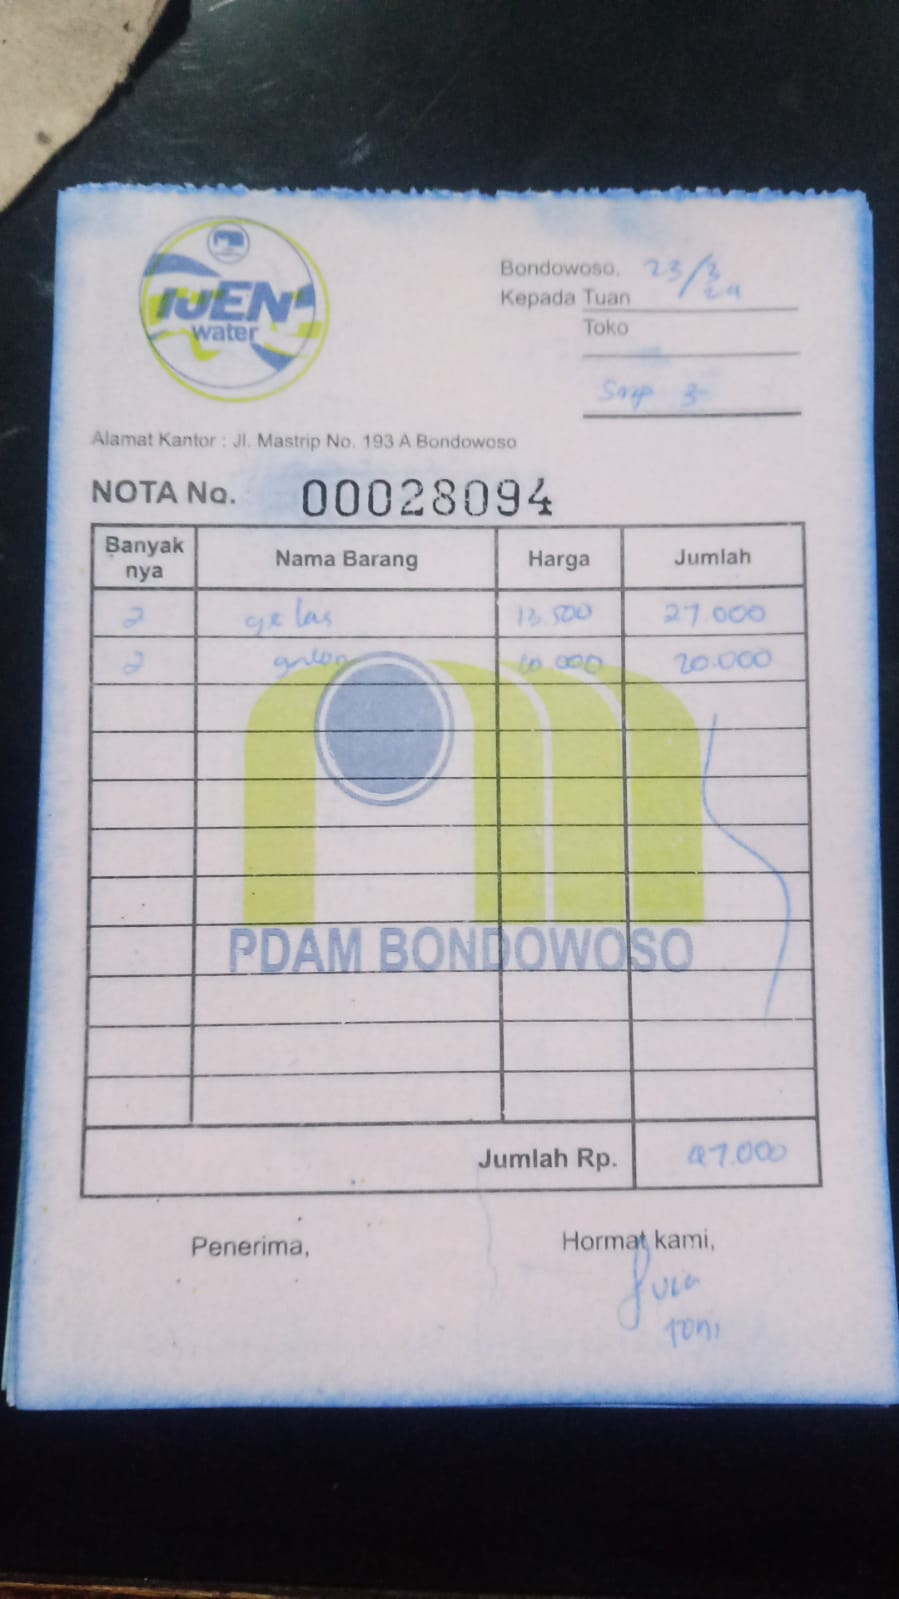 IJEN
water
Bondowoso, 23/3 24
Kepada Tuan
Toko
Alamat Kantor : Jl. Mastrip No. 193 A Bondowoso
NOTA No. 00028094
Banyak nya Nama Barang Harga Jumlah
2 gelas 13.500 27.000
2 galon 10.000 20.000
PDAM BONDOWOSO
Jumlah Rp. 47.000
Penerima, Hormat kami,
Toni